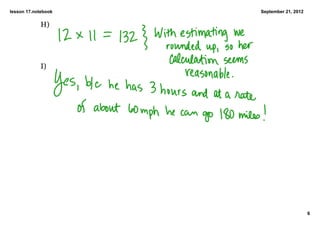 lesson 17.notebook
September 21, 2012
H)
12 x 11 = 132 } With estimating we
rounded up, so her
calculation seems
reasonable.
I)
Yes, b/c he has 3 hours and at a rate
of about 60mph he can go 180 miles!
6